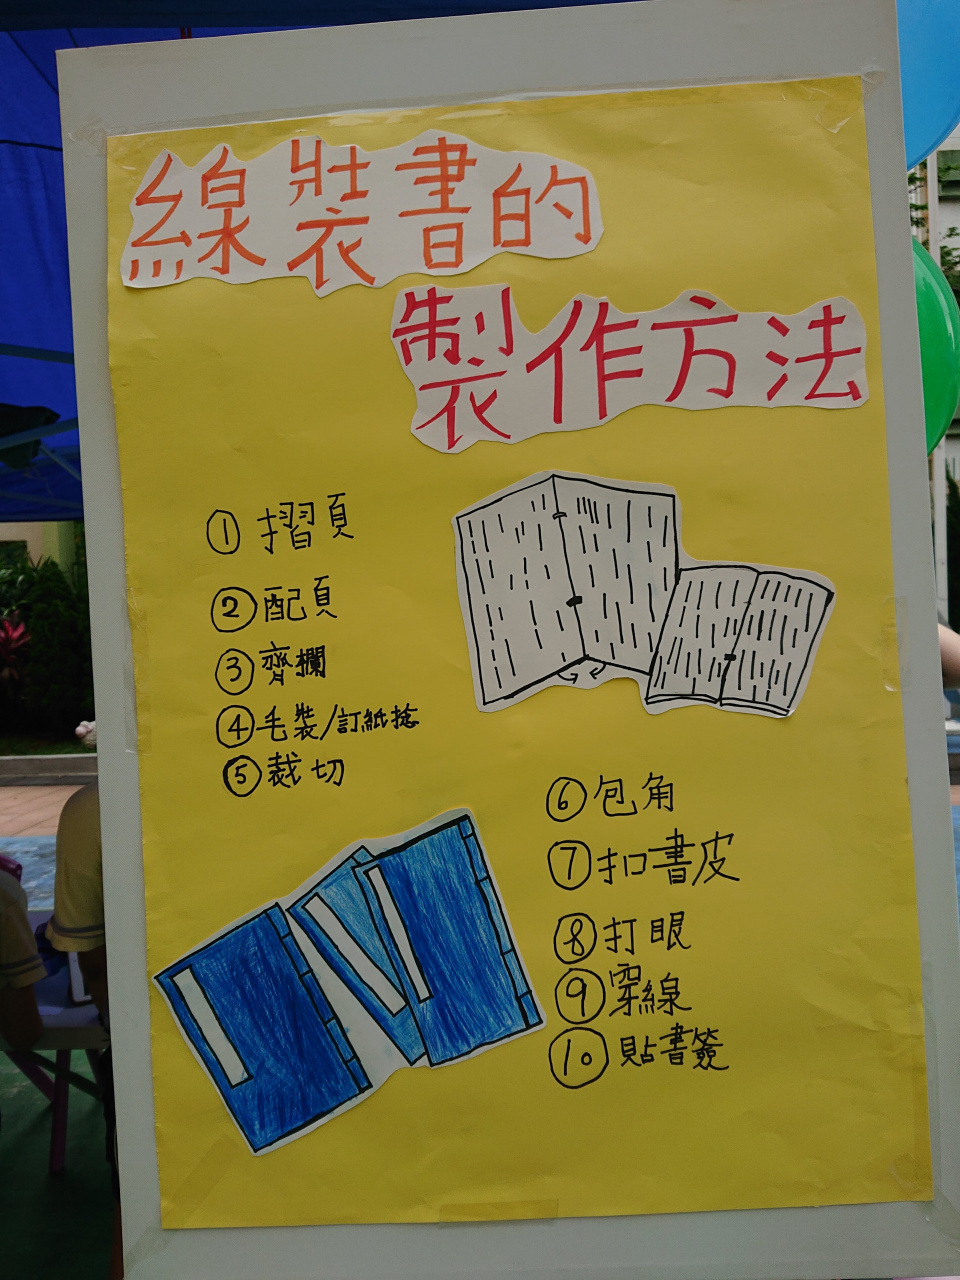 線裝書的
製作方法
① 摺頁
② 配頁
③ 齊欄
④ 毛裝/訂紙捻
⑤ 裁切
⑥ 包角
⑦ 扣書皮
⑧ 打眼
⑨ 穿線
⑩ 貼書簽